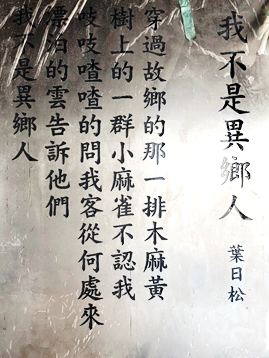 我不是異鄉人
葉日松
穿過故鄉的那一排木麻黃
樹上的一群小麻雀不認我
吱吱喳喳的問我客從何處來
漂泊的雲告訴他們
我不是異鄉人